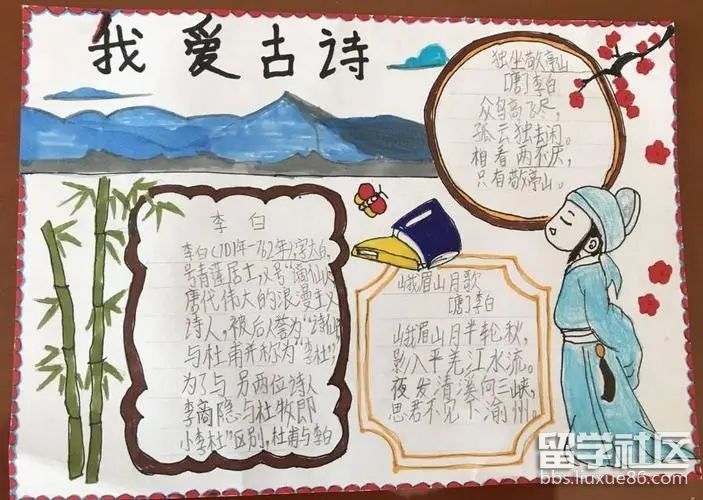 我爱古诗
独坐敬亭山
[唐]李白
众鸟高飞尽,
孤云独去闲。
相看两不厌,
只有敬亭山。
李白
李白(701年-762年),字太白,
号青莲居士,又号“谪仙人”
唐代伟大的浪漫主义
诗人,被后人誉为“诗仙”
与杜甫并称为“李杜”,
为了与另两位诗人
李商隐与杜牧即
小李杜”区别,杜甫与李白
峨眉山月歌
[唐]李白
峨眉山月半轮秋,
影入平羌江水流。
夜发清溪向三峡,
思君不见下渝州。
留学社区
bbs.liuxue86.com